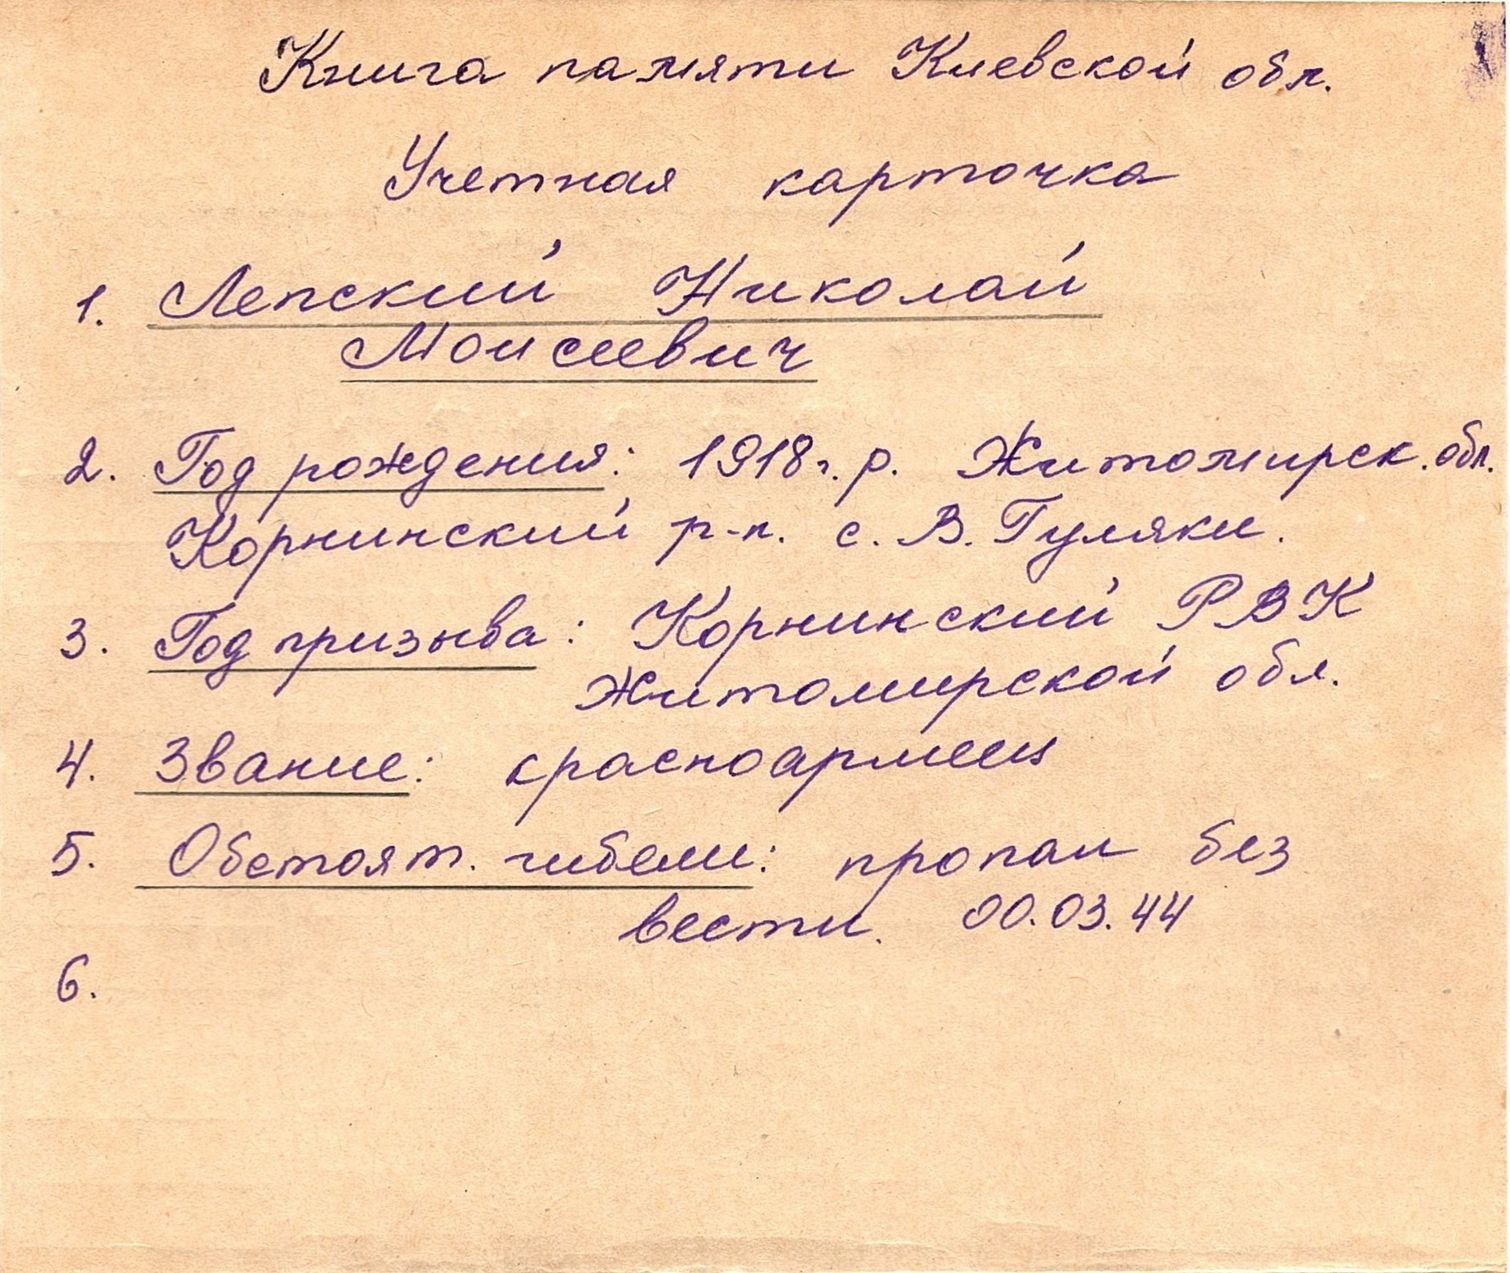 Книга памяти Киевской обл.
Учетная карточка
1. Лепский Николай
Моисеевич
2. Год рождения: 1918 г. р. Житомирск. обл.
Корнинский р-н. с. В. Гуляки.
3. Год призыва: Корнинский РВК
Житомирской обл.
4. Звание: красноармеец
5. Обстоят. гибели: пропал без
вести. 00.03.44
6.